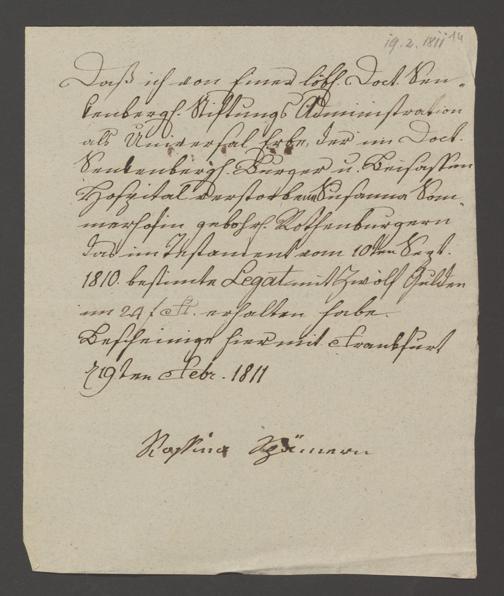 19.2.1811
Daß ich von Einer löbl. Doct. Sen-
kenbergh. Stiftungs Administration
als Universal Erbe, der im Doct.
Senkenbergh. Bürger u. Beisassen
Hospital verstorbenen Susanna Som-
merhofin gebohrh. Rothenburgern
das im Testament vom 10ten Sept.
1810. bestimte Legat mit Zwölf Gulden
im 24 f. erhalten habe.
Bescheinige hiermit Frankfurt
19ten Febr. 1811